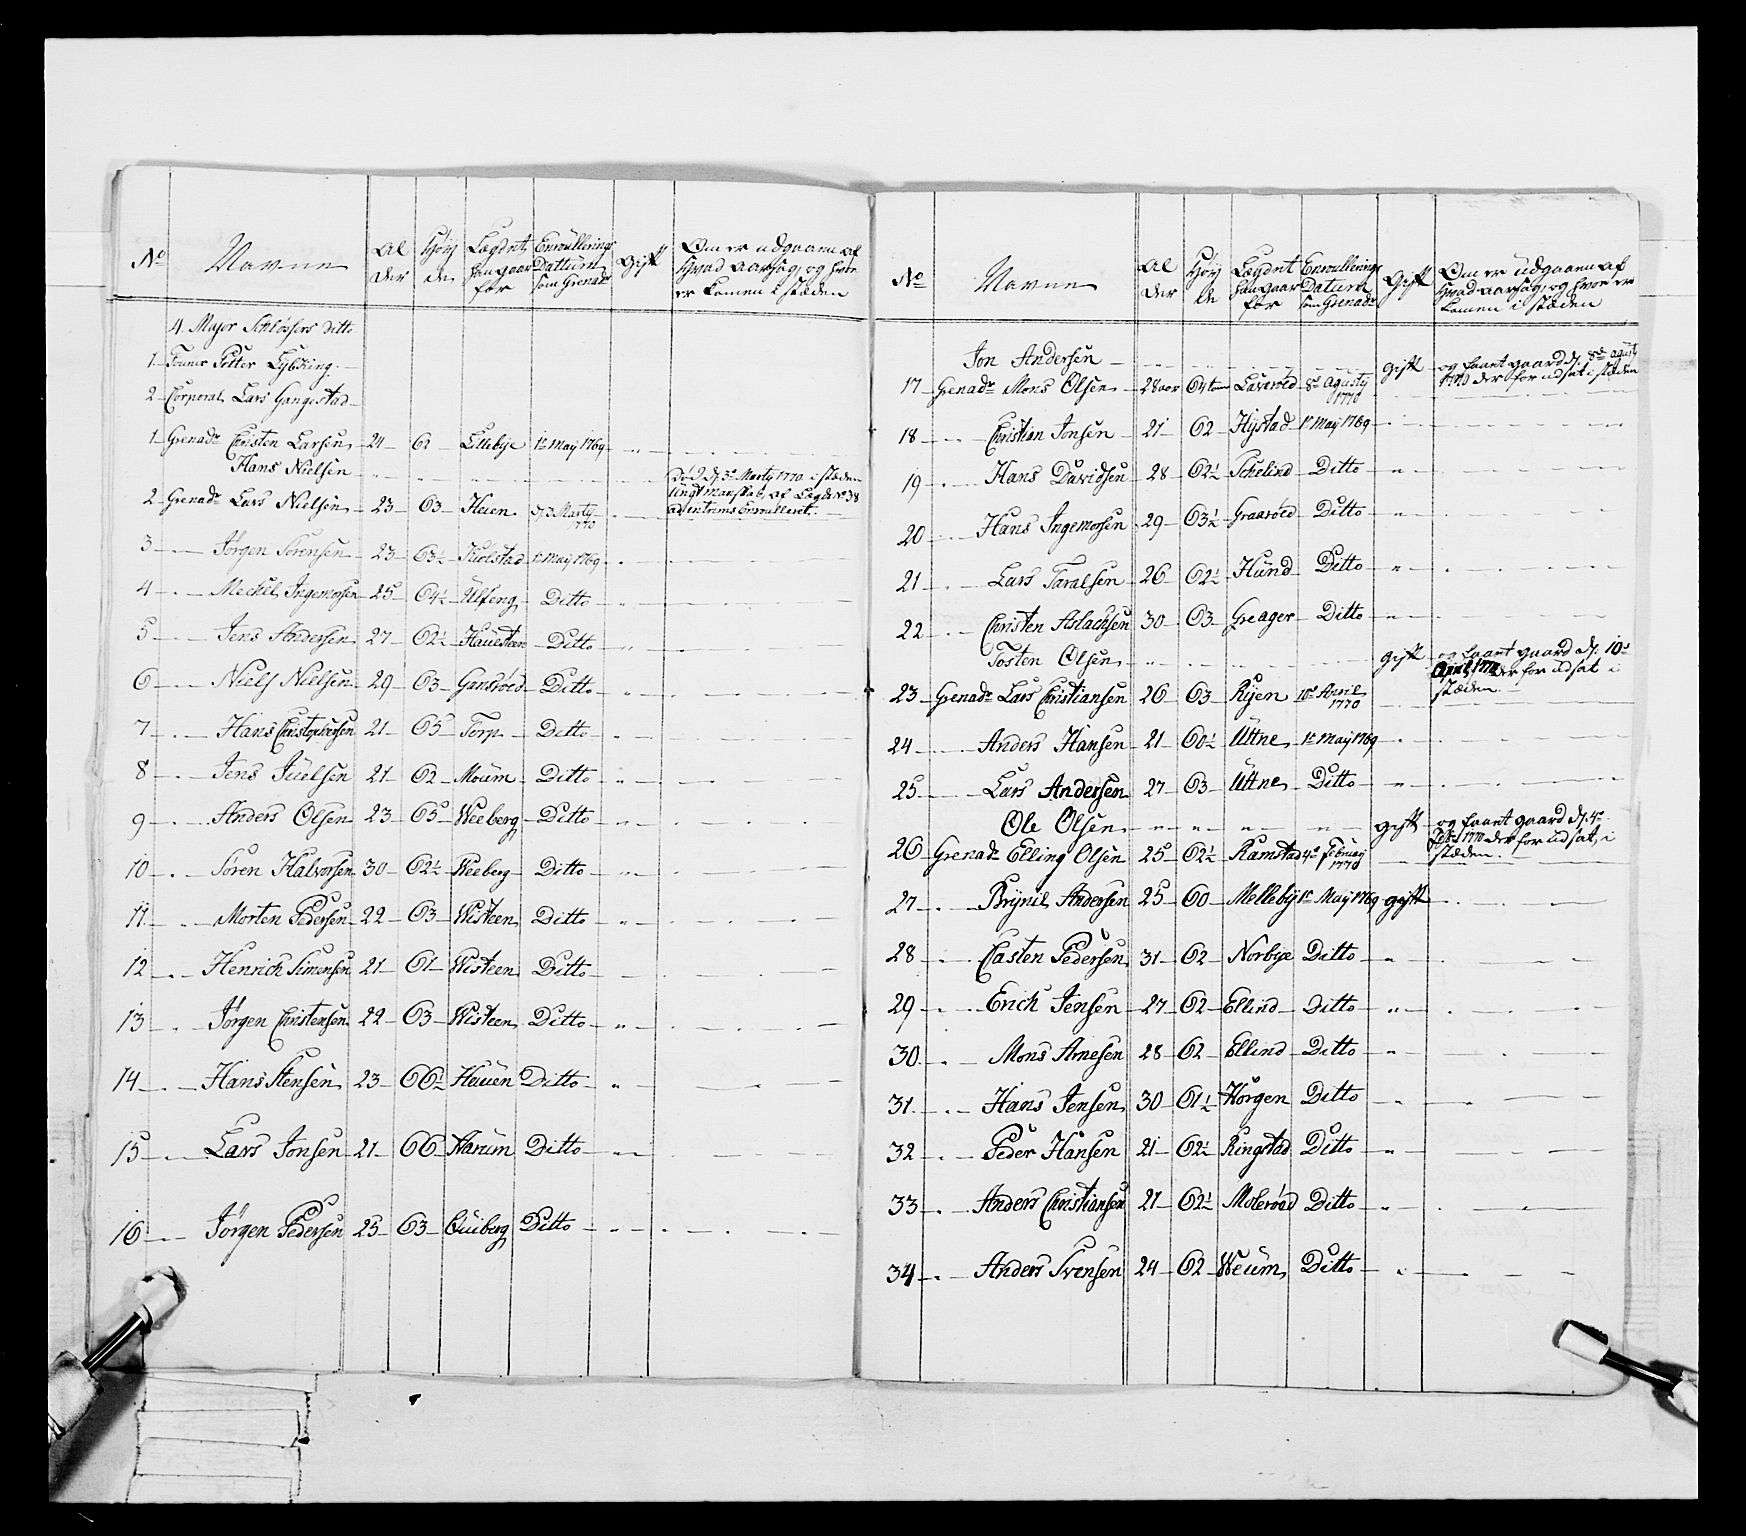 No Navne Al der Høy de Lægdet han gaar for Enroullerings Dattum som Grenadr Gift Om er udgaaen af hvad aarsag, og hvor er komen i stæden
4. Major Schløssers ditto
1 Petter Lybking
2 Corporal Lars Gangestad
1 Grenadr Christen Larsen 24 62 Ellebye 1te May 1769
Hans Nielsen Død d. 3e Marty 1770 i stæden
2 Grenadr Lars Nielsen 23 63 Heien d. 3 Marty 1770
3 Jørgen Sørensen 23 63½ Kiolstad 1te May 1769
4 Meckel Ingemorsen 25 64½ Ulfeng Ditto
5 Jens Andersen 27 62½ Hauesteen Ditto
6 Niels Nielsen 29 63 Gansrøed Ditto
7 Hans Christophersen 21 65 Torp Ditto
8 Jens Juelsen 21 62 Moum Ditto
9 Anders Olsen 23 65 Weeberg Ditto
10 Søren Halvorsen 30 62½ Weeberg Ditto
11 Morten Pedersen 22 63 Wisteen Ditto
12 Henrich Simensen 21 61 Wisteen Ditto
13 Jørgen Christensen 22 63 Wisteen Ditto
14 Hans Stensen 23 66½ Heuen Ditto
15 Lars Jonsen 21 66 Harum Ditto
16 Jørgen Pedersen 25 63 Quiberg Ditto
No Navne Al der Høy de Lægdet han gaar for Enroullerings Datum som Grenadr Gift Om er udgaaen af hvad aarsag, og hvor er komen i stæden
Jon Andersen gift og faaet gaard d. 8de Agusty 1770 der for udsat i stæden
17 Grenadr Mons Olsen 28 aar 64 tom Laserød 8de Agusty 1770
18 Christian Jonsen 21 62 Hystad 1te May 1769
19 Hans Davidsen 28 62½ Schelind Ditto
20 Hans Ingemorsen 29 63½ Graarøed Ditto
21 Lars Taralsen 26 62½ Hund Ditto
22 Christen Aslachsen 30 63 Greager Ditto
Tosten Olsen gift og faaet gaard d. 10de April 1770 der for udsat i stæden
23 Grenadr Lars Christiansen 26 63 Ryen 10de April 1770
24 Anders Hansen 21 60½ Uttne 1te May 1769
25 Lars Andersen 27 63 Uttne Ditto
Ole Olsen gift og faaet gaard d. 4de 1770 der for udsat i stæden
26 Grenadr Elling Olsen 25 62½ Ramstad 4de Februay 1770
27 Brynil Andersen 25 60 Melleby 1te May 1769 gift
28 Casten Pedersen 31 62 Norbye Ditto
29 Erich Jensen 27 62 Ellind Ditto
30 Mons Arnesen 28 62 Ellind Ditto
31 Hans Jensen 30 61½ Horgen Ditto
32 Peder Hansen 21 62½ Ringstad Ditto
33 Anders Christiansen 21 62½ Molerød Ditto
34 Anders Svensen 24 62 Weum Ditto